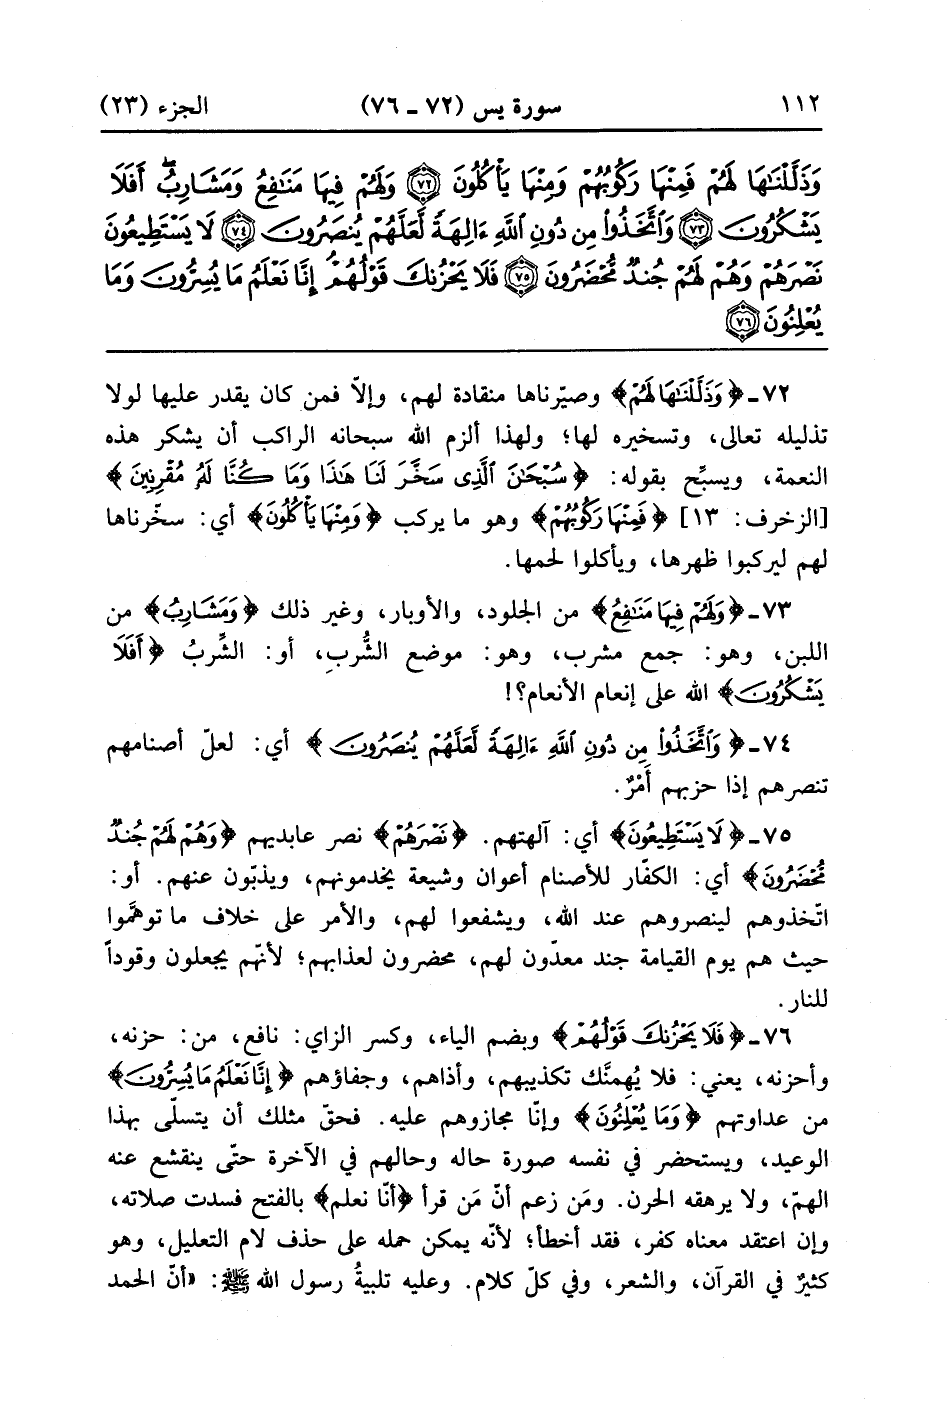 ١١٢ سورة يس (٧٢ - ٧٦) الجزء (٢٣)
وَذَلَّلْنَاهَا لَهُمْ فَمِنْهَا رَكُوبُهُمْ وَمِنْهَا يَأْكُلُونَ ﴿٧٢﴾ وَلَهُمْ فِيهَا مَنَافِعُ وَمَشَارِبُ ۖ أَفَلَا
يَشْكُرُونَ ﴿٧٣﴾ وَاتَّخَذُوا مِن دُونِ اللَّهِ ءَالِهَةً لَّعَلَّهُمْ يُنصَرُونَ ﴿٧٤﴾ لَا يَسْتَطِيعُونَ
نَصْرَهُمْ وَهُمْ لَهُمْ جُندٌ مُّحْضَرُونَ ﴿٧٥﴾ فَلَا يَحْزُنكَ قَوْلُهُمْ ۘ إِنَّا نَعْلَمُ مَا يُسِرُّونَ وَمَا
يُعْلِنُونَ ﴿٧٦﴾
٧٢ - ﴿وَذَلَّلْنَاهَا لَهُمْ﴾ وصيّرناها منقادة لهم، وإلّا فمن كان يقدر عليها لولا
تذليله تعالى، وتسخيره لها؛ ولهذا ألزم الله سبحانه الراكب أن يشكر هذه
النعمة، ويسبِّح بقوله: ﴿سُبْحَانَ الَّذِى سَخَّرَ لَنَا هَٰذَا وَمَا كُنَّا لَهُ مُقْرِنِينَ﴾
[الزخرف: ١٣] ﴿فَمِنْهَا رَكُوبُهُمْ﴾ وهو ما يركب ﴿وَمِنْهَا يَأْكُلُونَ﴾ أي: سخّرناها
لهم ليركبوا ظهرها، ويأكلوا لحمها.
٧٣ - ﴿وَلَهُمْ فِيهَا مَنَافِعُ﴾ من الجلود، والأوبار، وغير ذلك ﴿وَمَشَارِبُ﴾ من
اللبن، وهو: جمع مشرب، وهو: موضع الشُّرب، أو: الشِّربُ ﴿أَفَلَا
يَشْكُرُونَ﴾ الله على إنعام الأنعام؟!
٧٤ - ﴿وَاتَّخَذُوا مِن دُونِ اللَّهِ ءَالِهَةً لَّعَلَّهُمْ يُنصَرُونَ﴾ أي: لعلّ أصنامهم
تنصرهم إذا حزبهم أَمْرٌ.
٧٥ - ﴿لَا يَسْتَطِيعُونَ﴾ أي: آلهتهم. ﴿نَصْرَهُمْ﴾ نصر عابديهم ﴿وَهُمْ لَهُمْ جُندٌ
مُّحْضَرُونَ﴾ أي: الكفّار للأصنام أعوان وشيعة يخدمونهم، ويذبّون عنهم. أو:
اتّخذوهم لينصروهم عند الله، ويشفعوا لهم، والأمر على خلاف ما توهَّموا
حيث هم يوم القيامة جند معدّون لهم، محضرون لعذابهم؛ لأنّهم يجعلون وقوداً
للنار.
٧٦ - ﴿فَلَا يَحْزُنكَ قَوْلُهُمْ﴾ وبضم الياء، وكسر الزاي: نافع، من: حزنه،
وأحزنه، يعني: فلا يُهمنَّك تكذيبهم، وأذاهم، وجفاؤهم ﴿إِنَّا نَعْلَمُ مَا يُسِرُّونَ﴾
من عداوتهم ﴿وَمَا يُعْلِنُونَ﴾ وإنّا مجازوهم عليه. فحقّ مثلك أن يتسلّى بهذا
الوعيد، ويستحضر في نفسه صورة حاله وحالهم في الآخرة حتّى ينقشع عنه
الهمّ، ولا يرهقه الحرن. ومَن زعم أنّ مَن قرأ ﴿أنّا نعلم﴾ بالفتح فسدت صلاته،
وإن اعتقد معناه كفر، فقد أخطأ؛ لأنّه يمكن حمله على حذف لام التعليل، وهو
كثيرٌ في القرآن، والشعر، وفي كلّ كلام. وعليه تلبيةُ رسول الله ﷺ: «أنّ الحمد